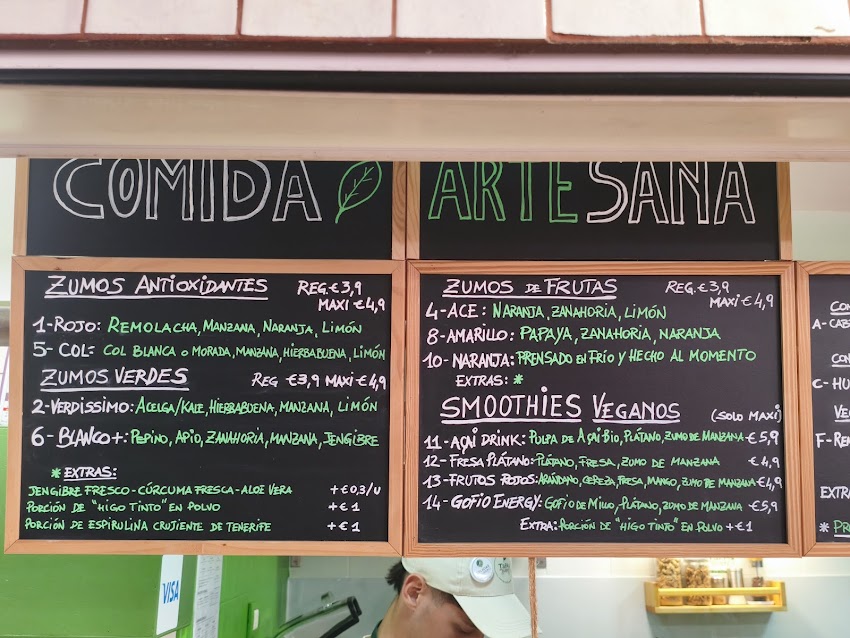 COMIDA ARTESANA
ZUMOS ANTIOXIDANTES REG. €3,9
MAXI €4,9
1-ROJO: REMOLACHA, MANZANA, NARANJA, LIMÓN
5-COL: COL BLANCA O MORADA, MANZANA, HIERBABUENA, LIMÓN
ZUMOS VERDES REG €3,9 MAXI €4,9
2-VERDISSIMO: ACELGA/KALE, HIERBABUENA, MANZANA, LIMÓN
6-BLANCO+: PEPINO, APIO, ZANAHORIA, MANZANA, JENGIBRE
* EXTRAS:
JENGIBRE FRESCO-CÚRCUMA FRESCA-ALOE VERA +€0,3/U
PORCIÓN DE "HIGO TINTO" EN POLVO +€1
PORCIÓN DE ESPIRULINA CRUJIENTE DE TENERIFE +€1
ZUMOS DE FRUTAS REG. €3,9
MAXI €4,9
4-ACE: NARANJA, ZANAHORIA, LIMÓN
8-AMARILLO: PAPAYA, ZANAHORIA, NARANJA
10-NARANJA: PRENSADO EN FRÍO Y HECHO AL MOMENTO
EXTRAS: *
SMOOTHIES VEGANOS (SOLO MAXI)
11-AÇAI DRINK: PULPA DE AÇAI BIO, PLÁTANO, ZUMO DE MANZANA €5,9
12-FRESA PLÁTANO: PLÁTANO, FRESA, ZUMO DE MANZANA €4,9
13-FRUTOS ROJOS: ARÁNDANO, CEREZA, FRESA, MANGO, ZUMO DE MANZANA €4,9
14-GOFIO ENERGY: GOFIO DE MILLO, PLÁTANO, ZUMO DE MANZANA €5,9
EXTRA: PORCIÓN DE "HIGO TINTO" EN POLVO +€1
CO
A-CAB
CON
C-HU
VE
F-REM
EXTR
* PR
VISA